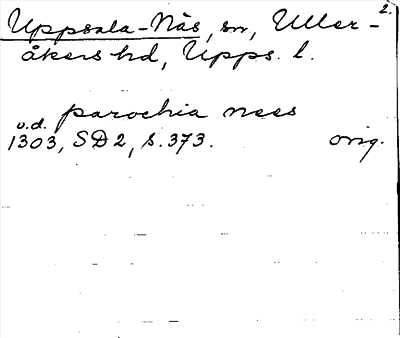 2.
Uppsala-Näs, sn, Uller-
åkers hd, Upps. l.
parochia nees
u.d.
1303, SD 2, s. 373. orig.